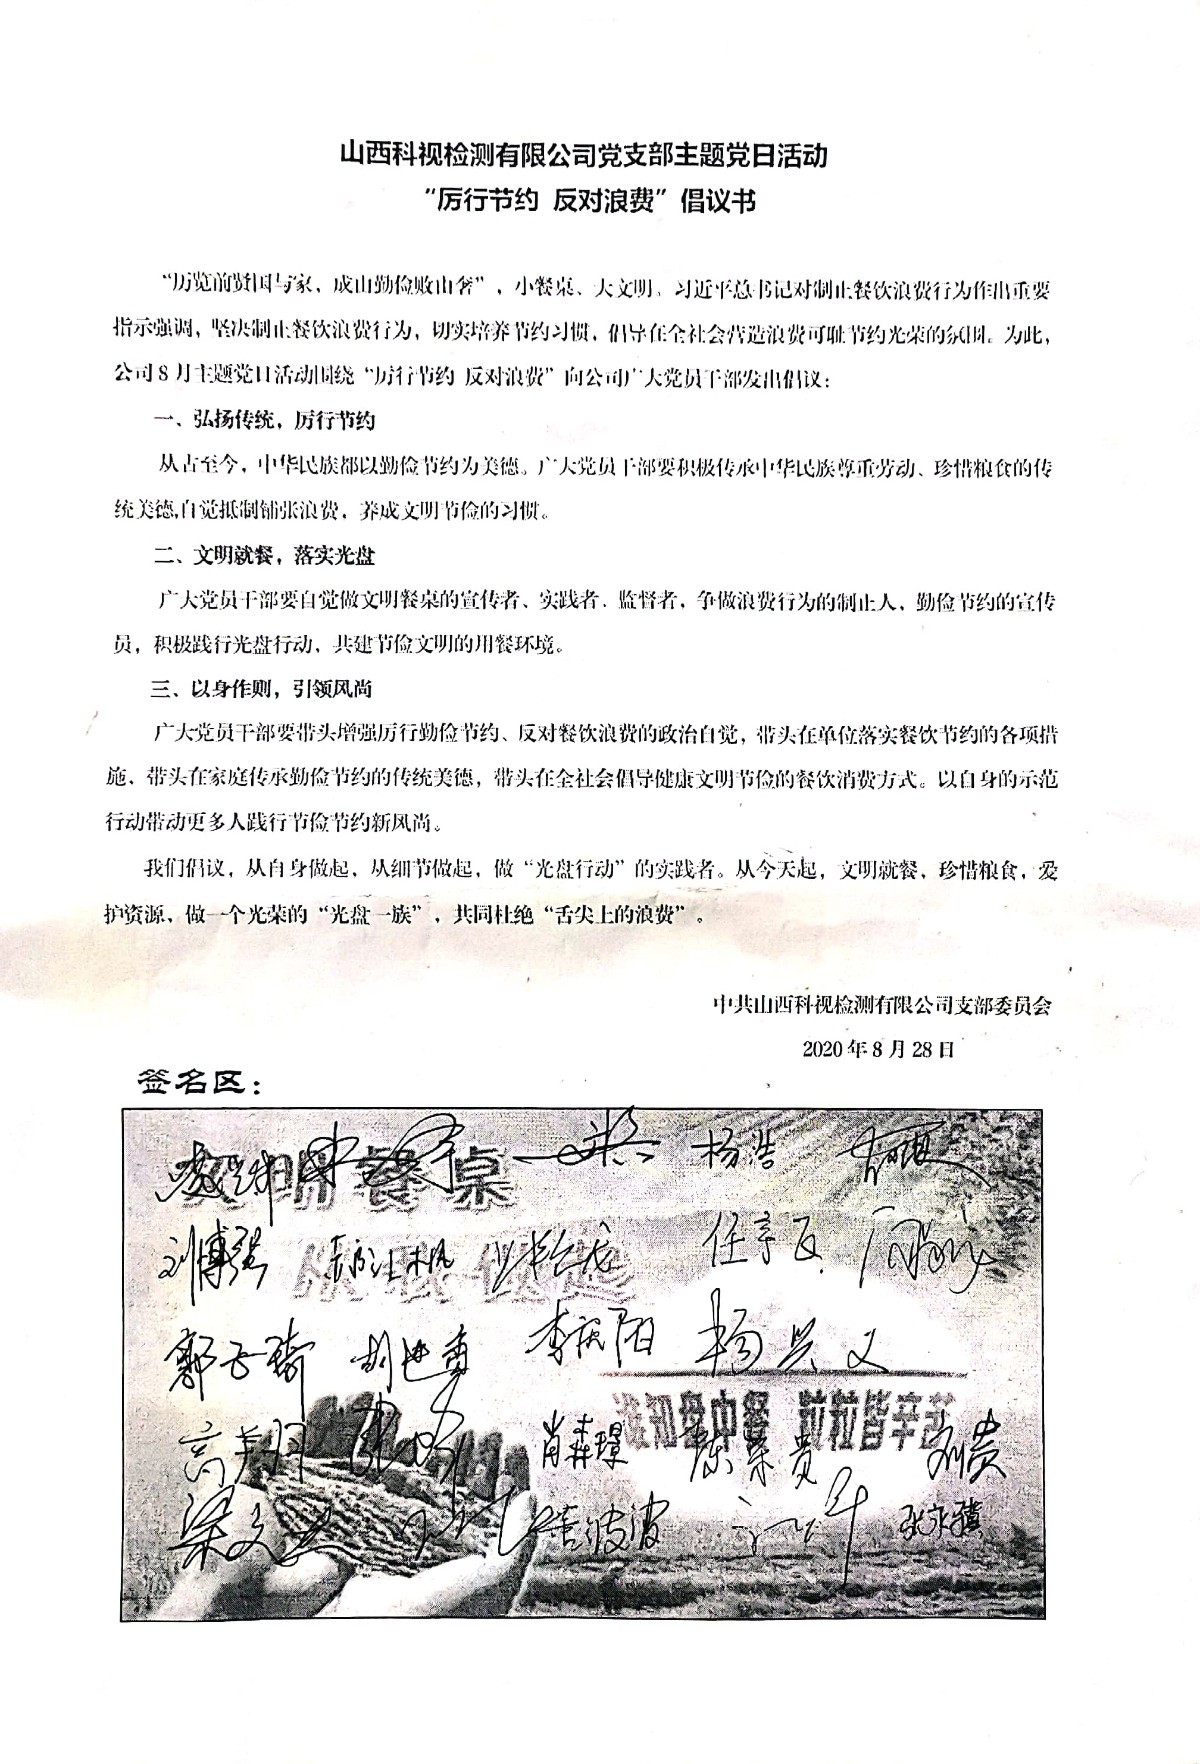 山西科视检测有限公司党支部主题党日活动
“厉行节约 反对浪费”倡议书
“历览前贤国与家，成由勤俭败由奢”，小餐桌、大文明。习近平总书记对制止餐饮浪费行为作出重要
指示强调，坚决制止餐饮浪费行为，切实培养节约习惯，倡导在全社会营造浪费可耻节约光荣的氛围。为此，
公司 8 月主题党日活动围绕“厉行节约 反对浪费”向公司广大党员干部发出倡议：
一、弘扬传统，厉行节约
从古至今，中华民族都以勤俭节约为美德。广大党员干部要积极传承中华民族尊重劳动、珍惜粮食的传
统美德,自觉抵制铺张浪费，养成文明节俭的习惯。
二、文明就餐，落实光盘
广大党员干部要自觉做文明餐桌的宣传者、实践者、监督者，争做浪费行为的制止人，勤俭节约的宣传
员，积极践行光盘行动，共建节俭文明的用餐环境。
三、以身作则，引领风尚
广大党员干部要带头增强厉行勤俭节约、反对餐饮浪费的政治自觉，带头在单位落实餐饮节约的各项措
施、带头在家庭传承勤俭节约的传统美德，带头在全社会倡导健康文明节俭的餐饮消费方式。以自身的示范
行动带动更多人践行节俭节约新风尚。
我们倡议，从自身做起，从细节做起，做“光盘行动”的实践者。从今天起，文明就餐，珍惜粮食，爱
护资源，做一个光荣的“光盘一族”，共同杜绝“舌尖上的浪费”。
中共山西科视检测有限公司支部委员会
2020 年 8 月 28 日
签名区：
文明餐桌
杨浩
刘博强
郭子琦 胡进勇 李庆阳 杨兴文
谁知盘中餐 粒粒皆辛苦
高美月 肖森璟 陈荣贵 刘贵
梁文 波波 张永骥